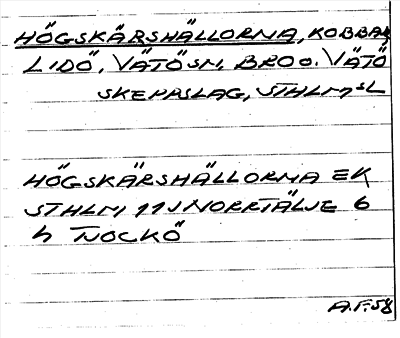 HÖGSKÄRSHÄLLORNA, KOBBAR
LIDÖ, VÄTÖ SN, BRO O. VÄTÖ
SKEPPSLAG, STHLMS L
HÖGSKÄRSHÄLLORNA EK
STHLM 11J NORRTÄLJE 6
h TJOCKÖ
A.F. 58